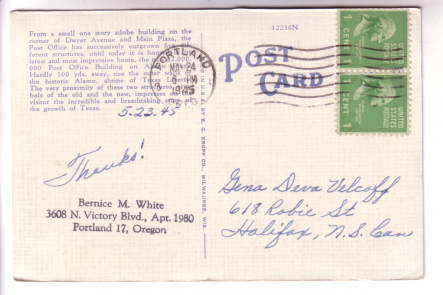 From a small one story adobe building on the
corner of Dwyer Avenue and Main Plaza, the
Post Office has successively outgrown
structures, until today it is
latest and most impressive home, the
000 Post Building on
Hardly 100 yds. away, rise the
the historic Alamo, shrine of Texas Liberty.
The very proximity of these two
bols of the old and the new, impresses
visitor the incredible and breathtaking
the growth of Texas.
5-23.45
PORTLAND
MAY 24
PM
1945
12216N
POST
CARD
1 CENT 1
UNITED
STATES
POSTAGE
1 CENT 1
UNITED
STATES
POSTAGE
E. C. KROPP CO., MILWAUKEE, WIS.
Thanks!
Bernice M. White
3608 N. Victory Blvd., Apt. 1980
Portland 17, Oregon
Gena Deva Velcoff
618 Robie St
Halifax, N.S. Can